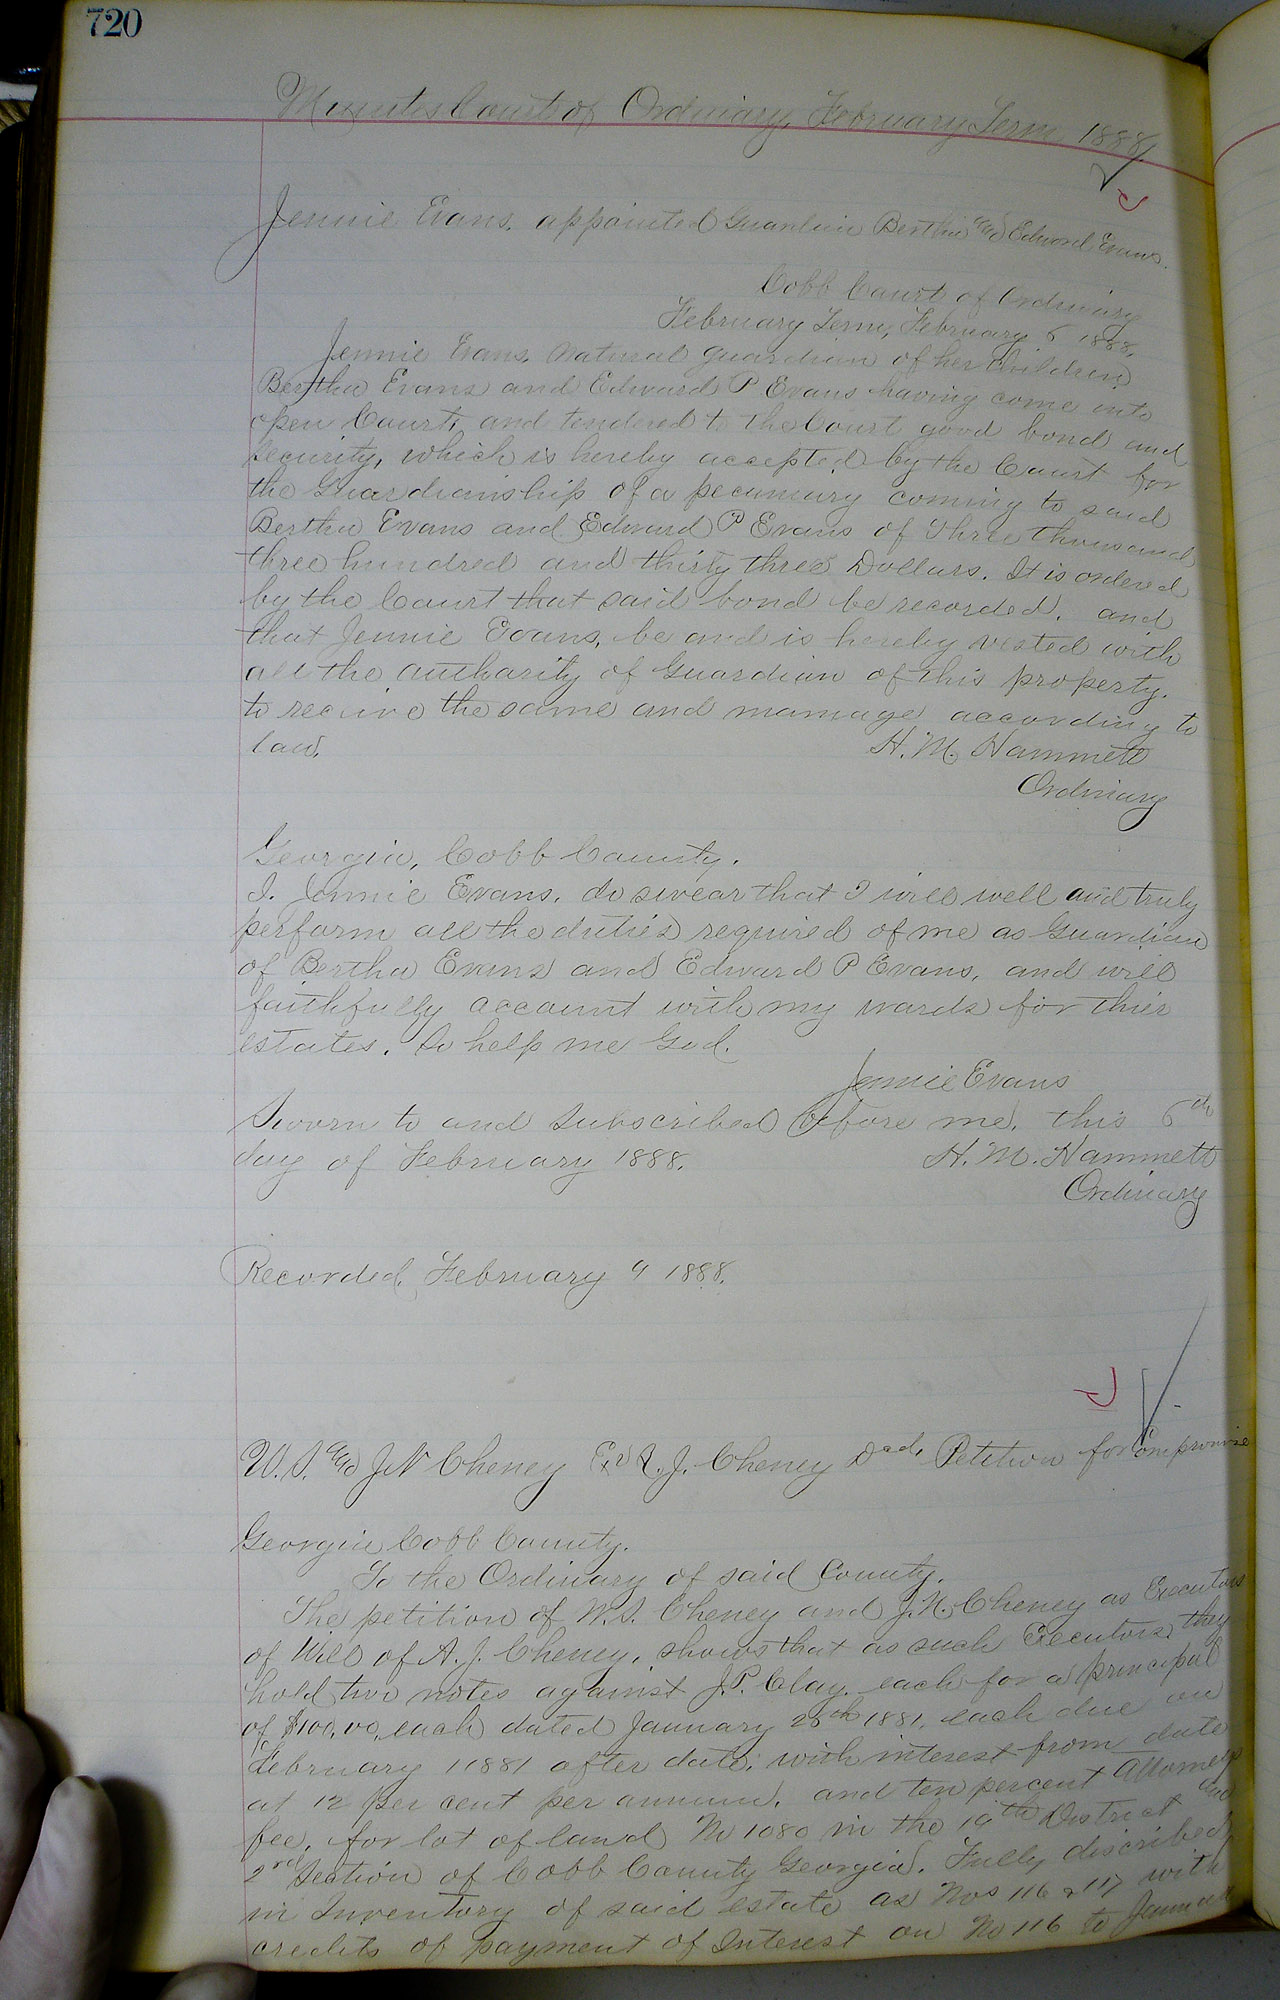 720
Minutes Court of Ordinary, February Term 1888
Jennie Evans, appointed Guardian Bertha and Edward Evans.
Cobb Court of Ordinary
February Term, February 6 1888.
Jennie Evans, natural guardian of her children
Bertha Evans and Edward P Evans having come into
open Court, and tendered to the Court good bond and
security, which is hereby accepted by the Court for
the Guardianship of a pecuniary coming to said
Bertha Evans and Edward P Evans of Three thousand
three hundred and thirty three Dollars. It is ordered
by the Court that said bond be recorded. and
that Jennie Evans, be and is hereby vested with
all the authority of Guardian of this property.
to receive the same and manage according to
law. H. M. Hammett
Ordinary
Georgia, Cobb County.
I. Jennie Evans. do swear that I will well and truly
perform all the duties required of me as Guardian
of Bertha Evans and Edward P Evans, and will
faithfully account with my wards for their
estates. So help me God.
Jennie Evans
Sworn to and subscribed before me, this 6th
day of February 1888. H. M. Hammett
Ordinary
Recorded, February 9 1888.
W. S. and J N Cheney Exr A. J. Cheney Decd, Petition for Compromise
Georgia Cobb County.
To the Ordinary of said County.
The petition of W. S. Cheney and J. N. Cheney as Executors
of Will of A. J. Cheney, shows that as such Executors they
hold two notes against J. P. Clay. each for a principal
of $100.00, each dated January 25th 1881, each due on
February 1 1881 after date, with interest from date
at 12 per cent per annum, and ten percent Attorneys
fee, for lot of land No 1080 in the 19th District and
2nd Section of Cobb County Georgia. Fully discribed
in Inventory of said estate as Nos 116 & 117 with
credits of payment of Interest on No 116 to January